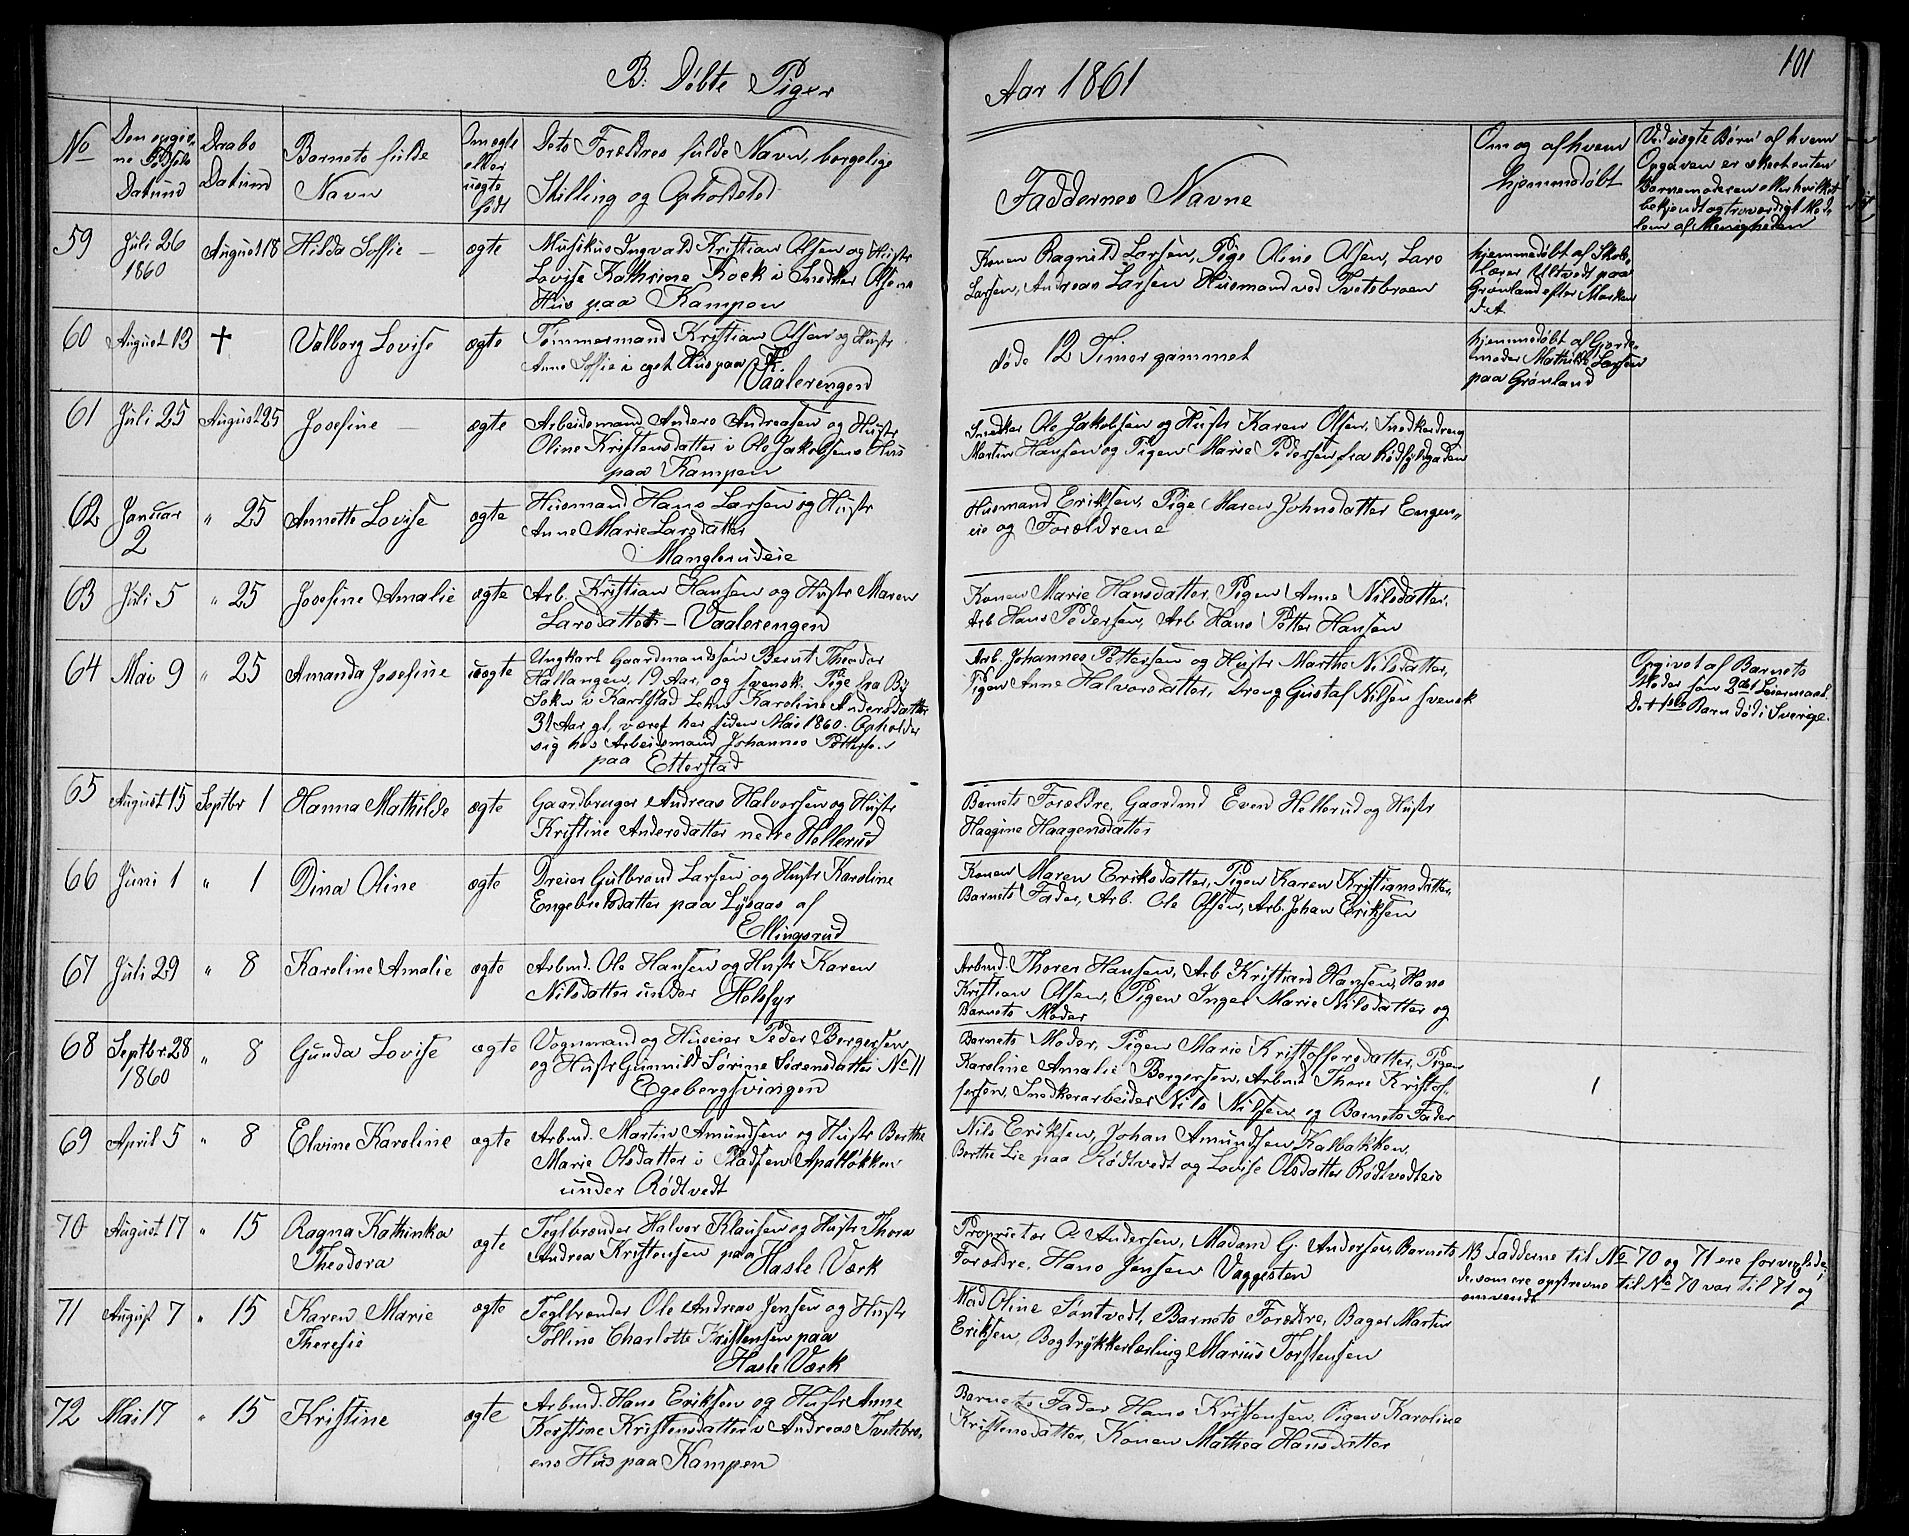 B. Døbte Piger
Aar 1861
101
No
Den opgivne Fødsels Datum
Daabs Datum
Barnets fulde Navn
Om ægte eller uægte født
Dets Forældres fulde Navn, borgelige Stilling og Opholdsted
Faddernes Navne
Om og af hvem hjemmedøbt
Ved uægte Børn af hvem
Opgaven er skeet enten
Barnemoderen eller hvilket
bekjendt og troværdigt Med-
lem af Menigheden
59 Juli 26 1860 August 18 Hilda Soffie ægte
Musikus Ingvald Kristian Olsen og Hustr
Lovise Kathrine Kock i Snedker Olsens
Hus paa Kampen
Konen Ragnild Larsen, Pige Oline Olsen, Lars
Larsen, Andreas Larsen Husmand ved Tvetebroen
hjemmedøbt af Skole-
lærer Ultvedt paa
Grønland efter Moders
60 August 13 + Valborg Lovise ægte
Tømmermand Kristian Olsen og Hustr
Anne Soffie i eget Hus paa
Vaalerengen
døde 12 Timer gammel
hjemmedøbt af Jorde-
moder Mathilde Larsen
paa Grønland
61 Juli 25 August 25 Josefine — ægte
Arbeidsmand Anders Andreasen og Hustr
Oline Kristensdatter i Ole Jakobsens Hus
paa Kampen
Snedker Ole Jakobsen og Hustr Karen Olsen, Snedkerdreng
Martin Hansen og Pigen Marie Pedersen fra Rødfyldgaden
62 Januar 2 " 25 Annette Lovise ægte
Husmand Hans Larsen og Hustr
Anne Marie Larsdatter
Manglerudeie
Husmand Eriksen, Pige Maren Johnsdatter Engen-
eie og Forældrene
63 Juli 5 " 25 Josefine Amalie ægte
Arb. Kristian Hansen og Hustr Maren
Larsdatter — Vaalerengen
Konen Marie Hansdatter, Pigen Anne Nilsdatter,
Arb Hans Pedersen, Arb Hans Petter Hansen
64 Mai 9 " 25 Amanda Josefine uægte
Ungkarl Gaardmandssøn Bernt Theodor
Hallangen, 19 Aar, og svensk Pige fra By
Sokn i Karlstad Lehn Karoline Andersdatter
31 Aar gl, været her siden Mai 1860. Opholder
sig hos Arbeidsmand Johannes Pettersen
paa Etterstad
Arb. Johannes Pettersen og Hustr Marthe Nilsdatter,
Pigen Anne Halvorsdatter, Dreng Gustaf Nilsen svensk
Opgivet af Barnets
Moder som 2det Leiermaal.
Det 1ste Barn død i Sverige.
65 August 15 Septbr 1 Hanna Mathilde ægte
Gaardbruger Andreas Halvorsen og Hustr
Kristine Andersdatter nedre Hellerud
Barnets Forældre, Gaardmd Even Hellerud og Hustr
Haagine Haagensdatter
66 Juni 1 " 1 Dina Oline ægte
Dreier Gulbrand Larsen og Hustr Karoline
Engebretsdatter paa Lysaas af
Ellingsrud
Konen Maren Eriksdatter, Pigen Karen Kristiansdatter,
Barnets Fader, Arb. Ole Olsen, Arb. Johan Eriksen
67 Juli 29 " 8 Karoline Amalie ægte
Arbmd. Ole Hansen og Hustr Karen
Nilsdatter under Helsfyr
Arbmd. Thorer Hansen, Arb Kristian Hansen, Hans
Kristian Olsen, Pigen Inger Marie Nilsdatter og
Barnets Moder
68 Septbr. 28 1860 " 8 Gunda Lovise ægte
Vognmand og Huseier Peder Bergersen
og Hustr Gunnild Sørine Sørensdatter No 11
Egebergsvingen
Barnets Moder, Pigen Marie Kristoffersdatter, Pigen
Karoline Amalie Bergersen, Arbmd Thore Kristof-
fersen, Snedkerarbeider Nils Nilsen og Barnets Fader
69 April 5 " 8 Elvine Karoline ægte
Arbmd. Martin Amundsen og Hustr Berthe
Marie Olsdatter i Pladsen Apalløkken
under Rødtvedt
Nils Eriksen, Johan Amundsen Kalbakken,
Berthe Lie paa Rødtvedt og Lovise Olsdatter Rødtvedteie
70 August 17 " 15 Ragna Kathinka Theodora ægte
Teglbrænder Halvor Klausen og Hustr Thora
Andrea Kristensen paa Hasle Værk
Proprietær A. Andersen, Madam G. Andersen, Barnets
Forældre, Hans Jensen Vaggesten
NB Fadderne til No 70 og 71 ere forvexlede,
de, som ere opskrevne til No 70 var til 71 og
omvendt
71 August 7 " 15 Karen Marie Theresie ægte
Teglbrænder Ole Andreas Jensen og Hustr
Polline Charlotte Kristensen paa
Hasle Værk
Mad Oline Sontvedt, Barnets Forældre, Bager Martin
Eriksen, Bogtrykkerlærling Marius Torstensen
72 Mai 17 " 15 Kristine ægte
Arbmd. Hans Eriksen og Hustr Anne
Kerstine Kristensdatter i Andreas Tvetebro-
ens Hus paa Kampen
Barnets Fader Hans Kristensen, Pigen Karoline
Kristensdatter, Konen Mathea Hansdatter